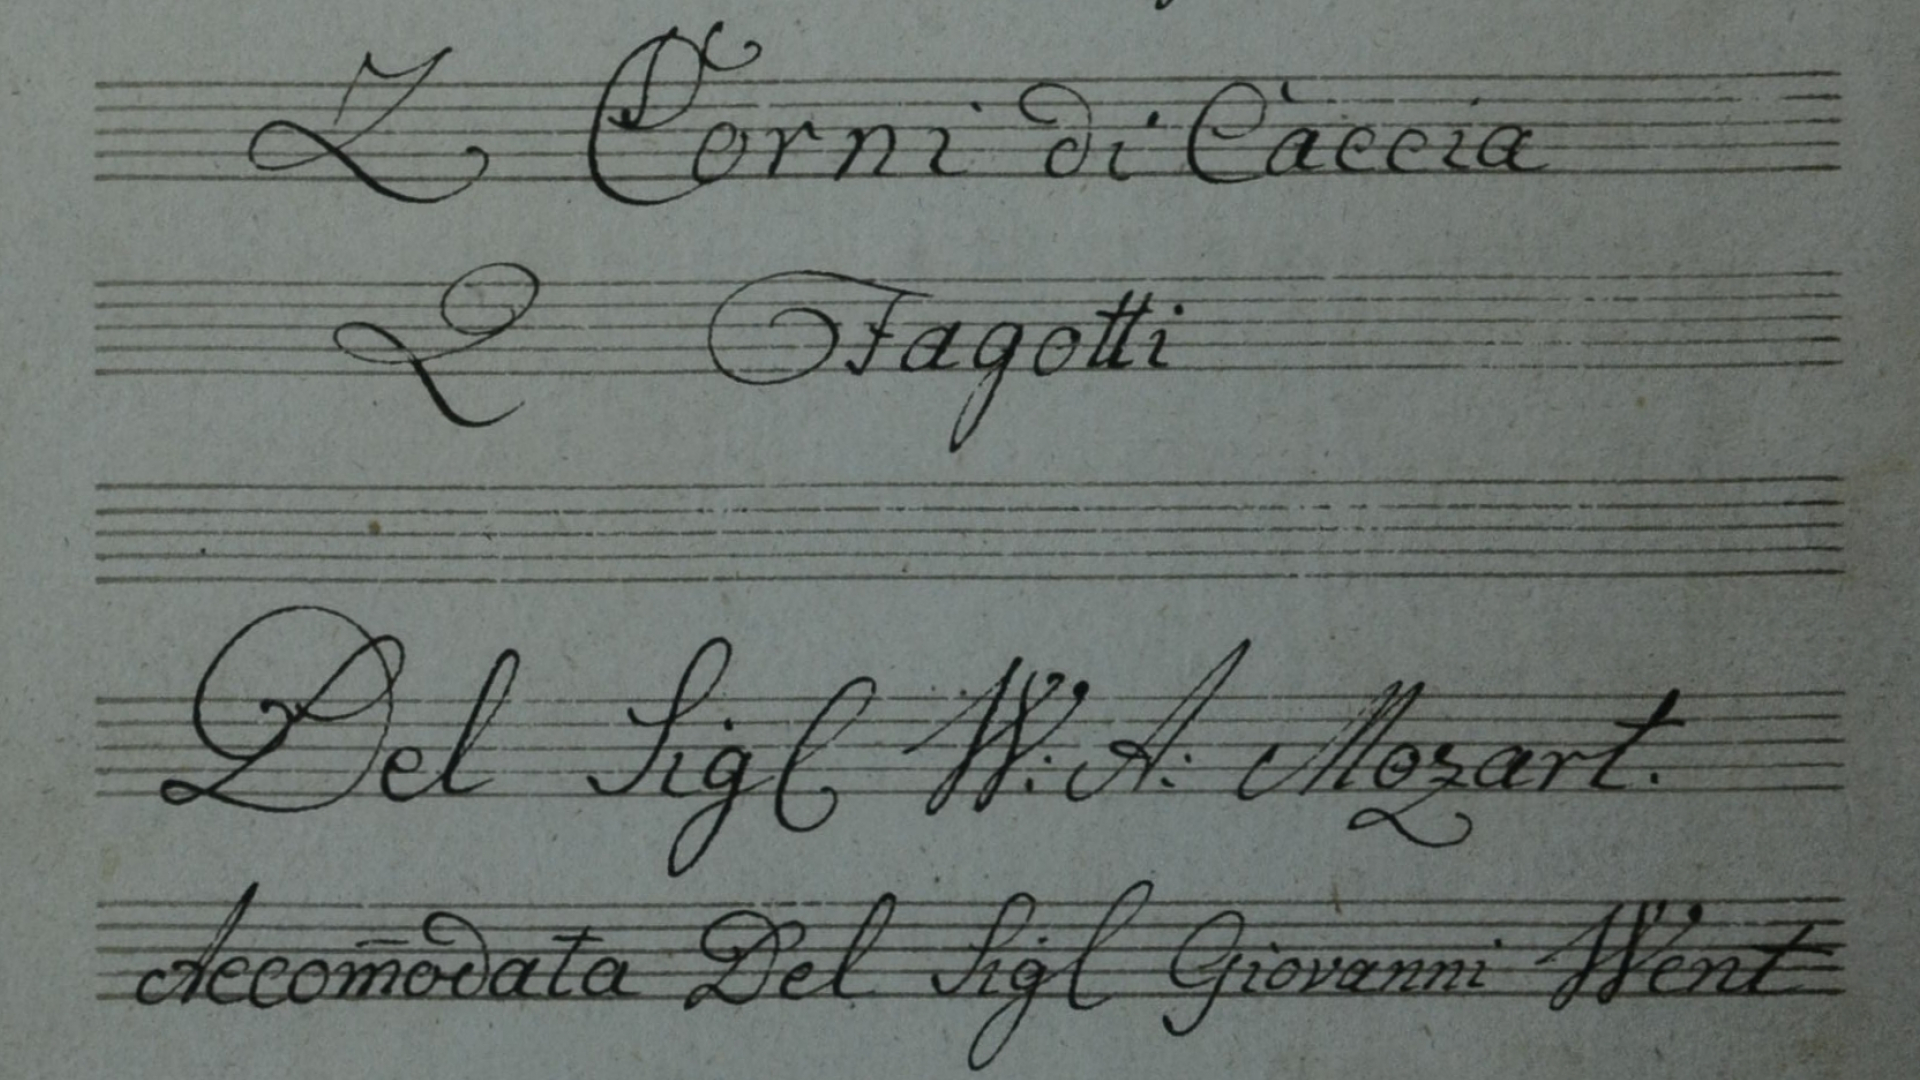 2 Corni di Caccia
2 Fagotti
Del Sigl W: A: Mozart.
Accom̄odata Del Sigl Giovanni Went